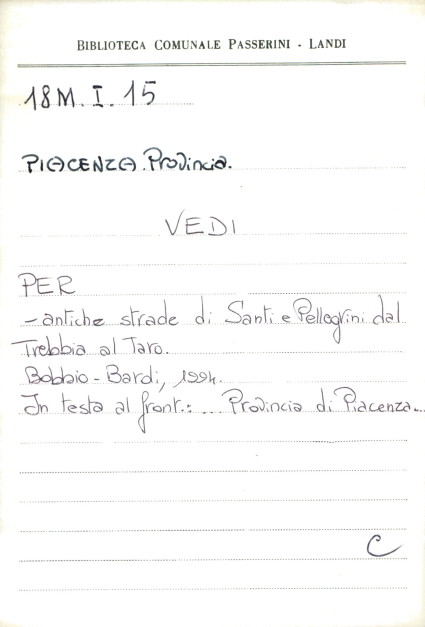 BIBLIOTECA COMUNALE PASSERINI - LANDI
18M.I.15
PIACENZA.Provincia.
VEDI
PER
-antiche strade di Santi e Pellegrini dal
Trebbia al Taro.
Bobbio-Bardi, 1994.
In testa al front.: ... Provincia di Piacenza...
C